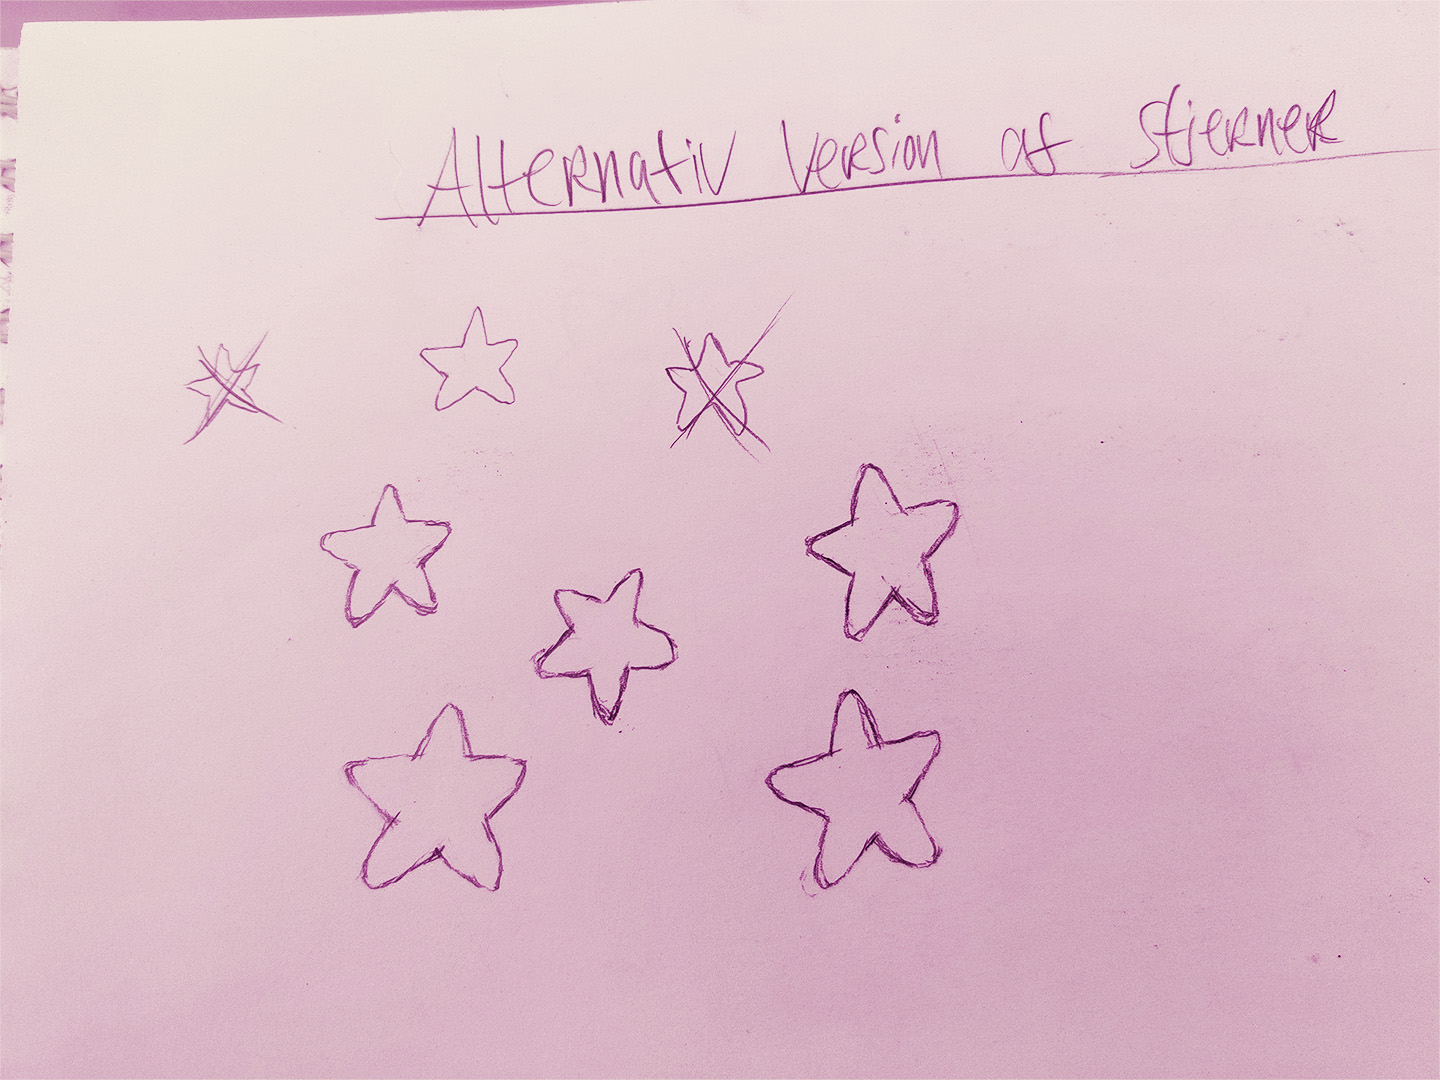 Alternativ version af stjerner